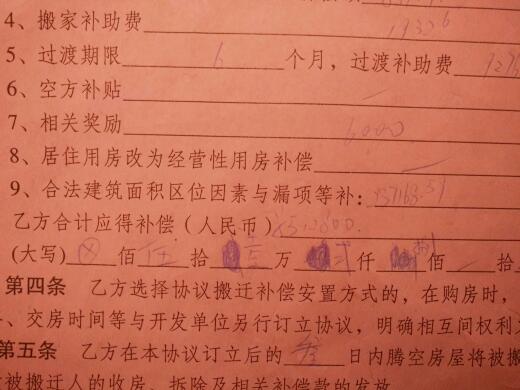 4、搬家补助费
5、过渡期限 6 个月，过渡补助费
6、空方补贴
7、相关奖励 6000
8、居住用房改为经营性用房补偿
9、合法建筑面积区位因素与漏项等补：
乙方合计应得补偿（人民币）
(大写) 佰 伍 拾 万 仟 佰 拾
第四条 乙方选择协议搬迁补偿安置方式的，在购房时，
、交房时间等与开发单位另行订立协议，明确相互间权利
第五条 乙方在本协议订立后的 日内腾空房屋将被搬
被搬迁人的收房、拆除及相关补偿款的发放